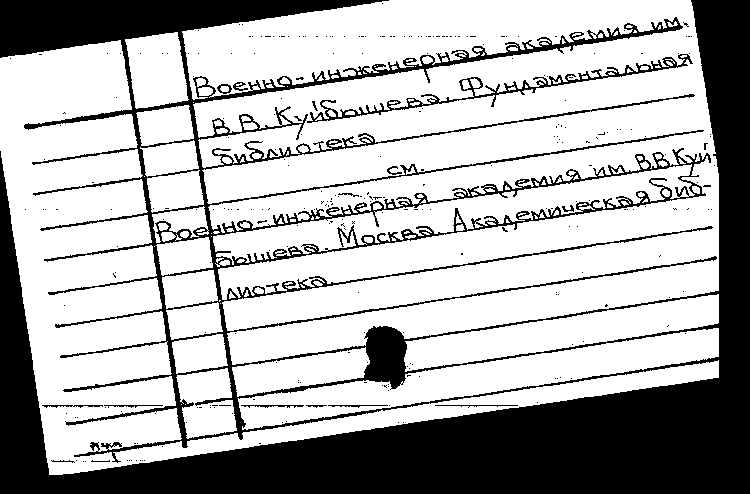 Военно-инженерная академия им.
В.В. Куйбышева. Фундаментальная
библиотека
см.
Военно-инженерная академия им. В.В. Куй-
бышева. Москва. Академическая биб-
лиотека.